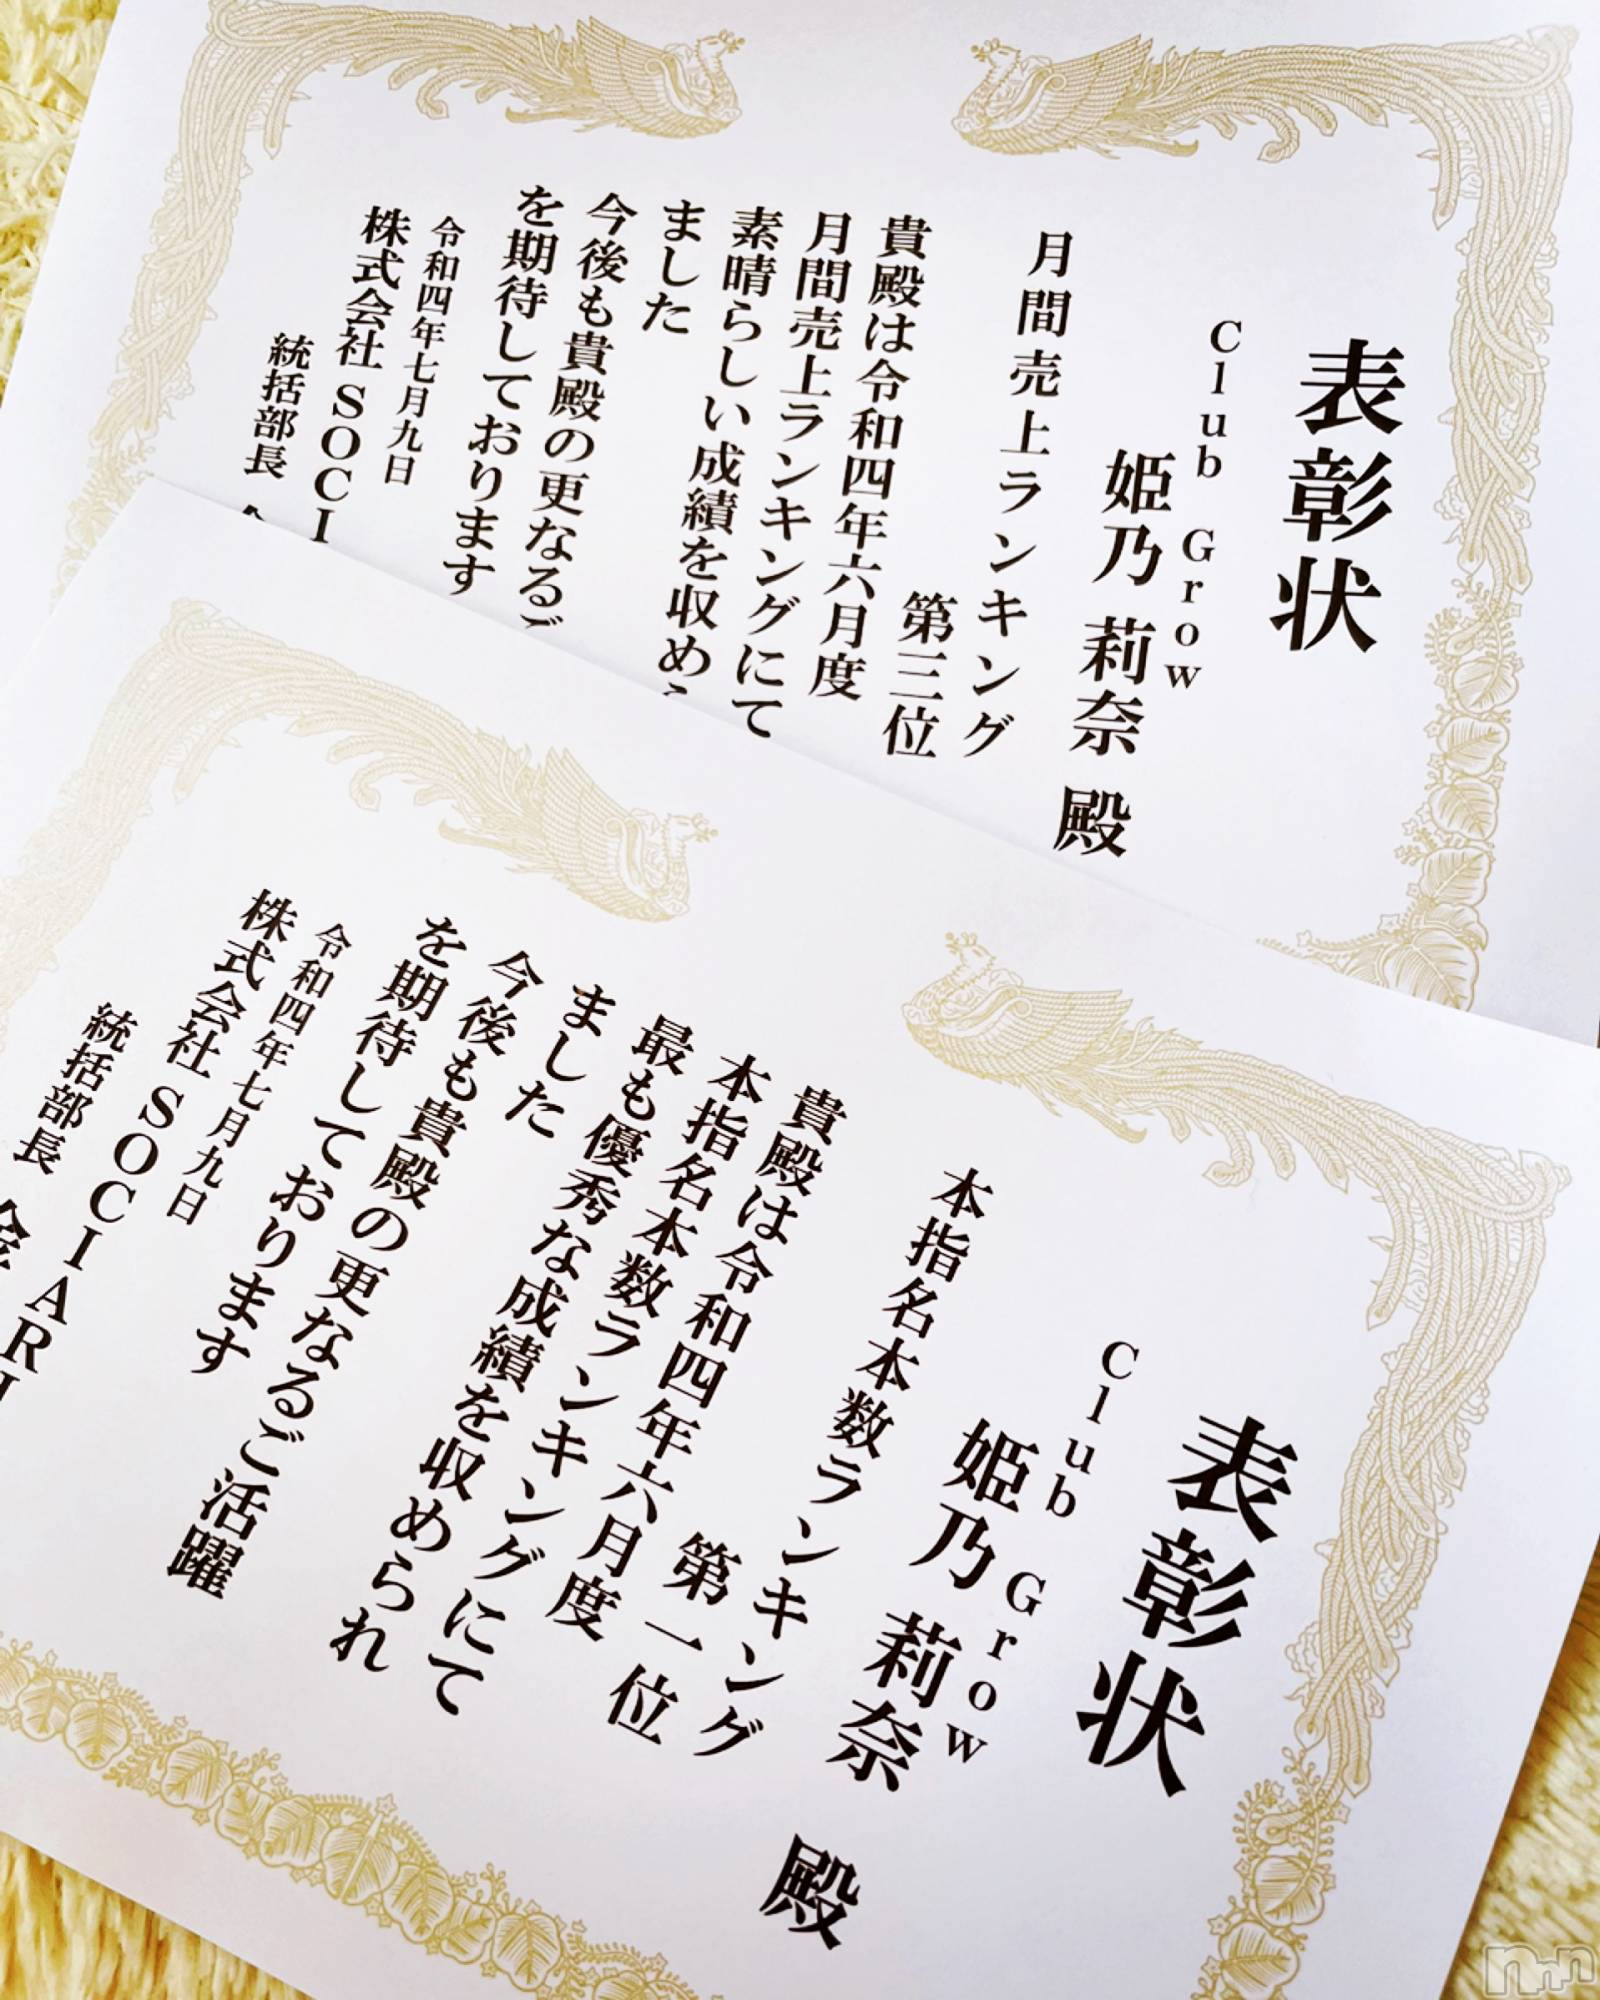 表彰状
Club Grow
姫乃 莉奈 殿
月間売上ランキング
第三位
貴殿は令和四年六月度
月間売上ランキングにて
素晴らしい成績を収め
ました
今後も貴殿の更なるご
を期待しております
令和四年七月九日
株式会社 SOCI
統括部長
表彰状
Club Grow
姫乃 莉奈 殿
本指名本数ランキング
第一位
貴殿は令和四年六月度
本指名本数ランキングにて
最も優秀な成績を収められ
ました
今後も貴殿の更なるご活躍
を期待しております
令和四年七月九日
株式会社 SOCIAR
統括部長